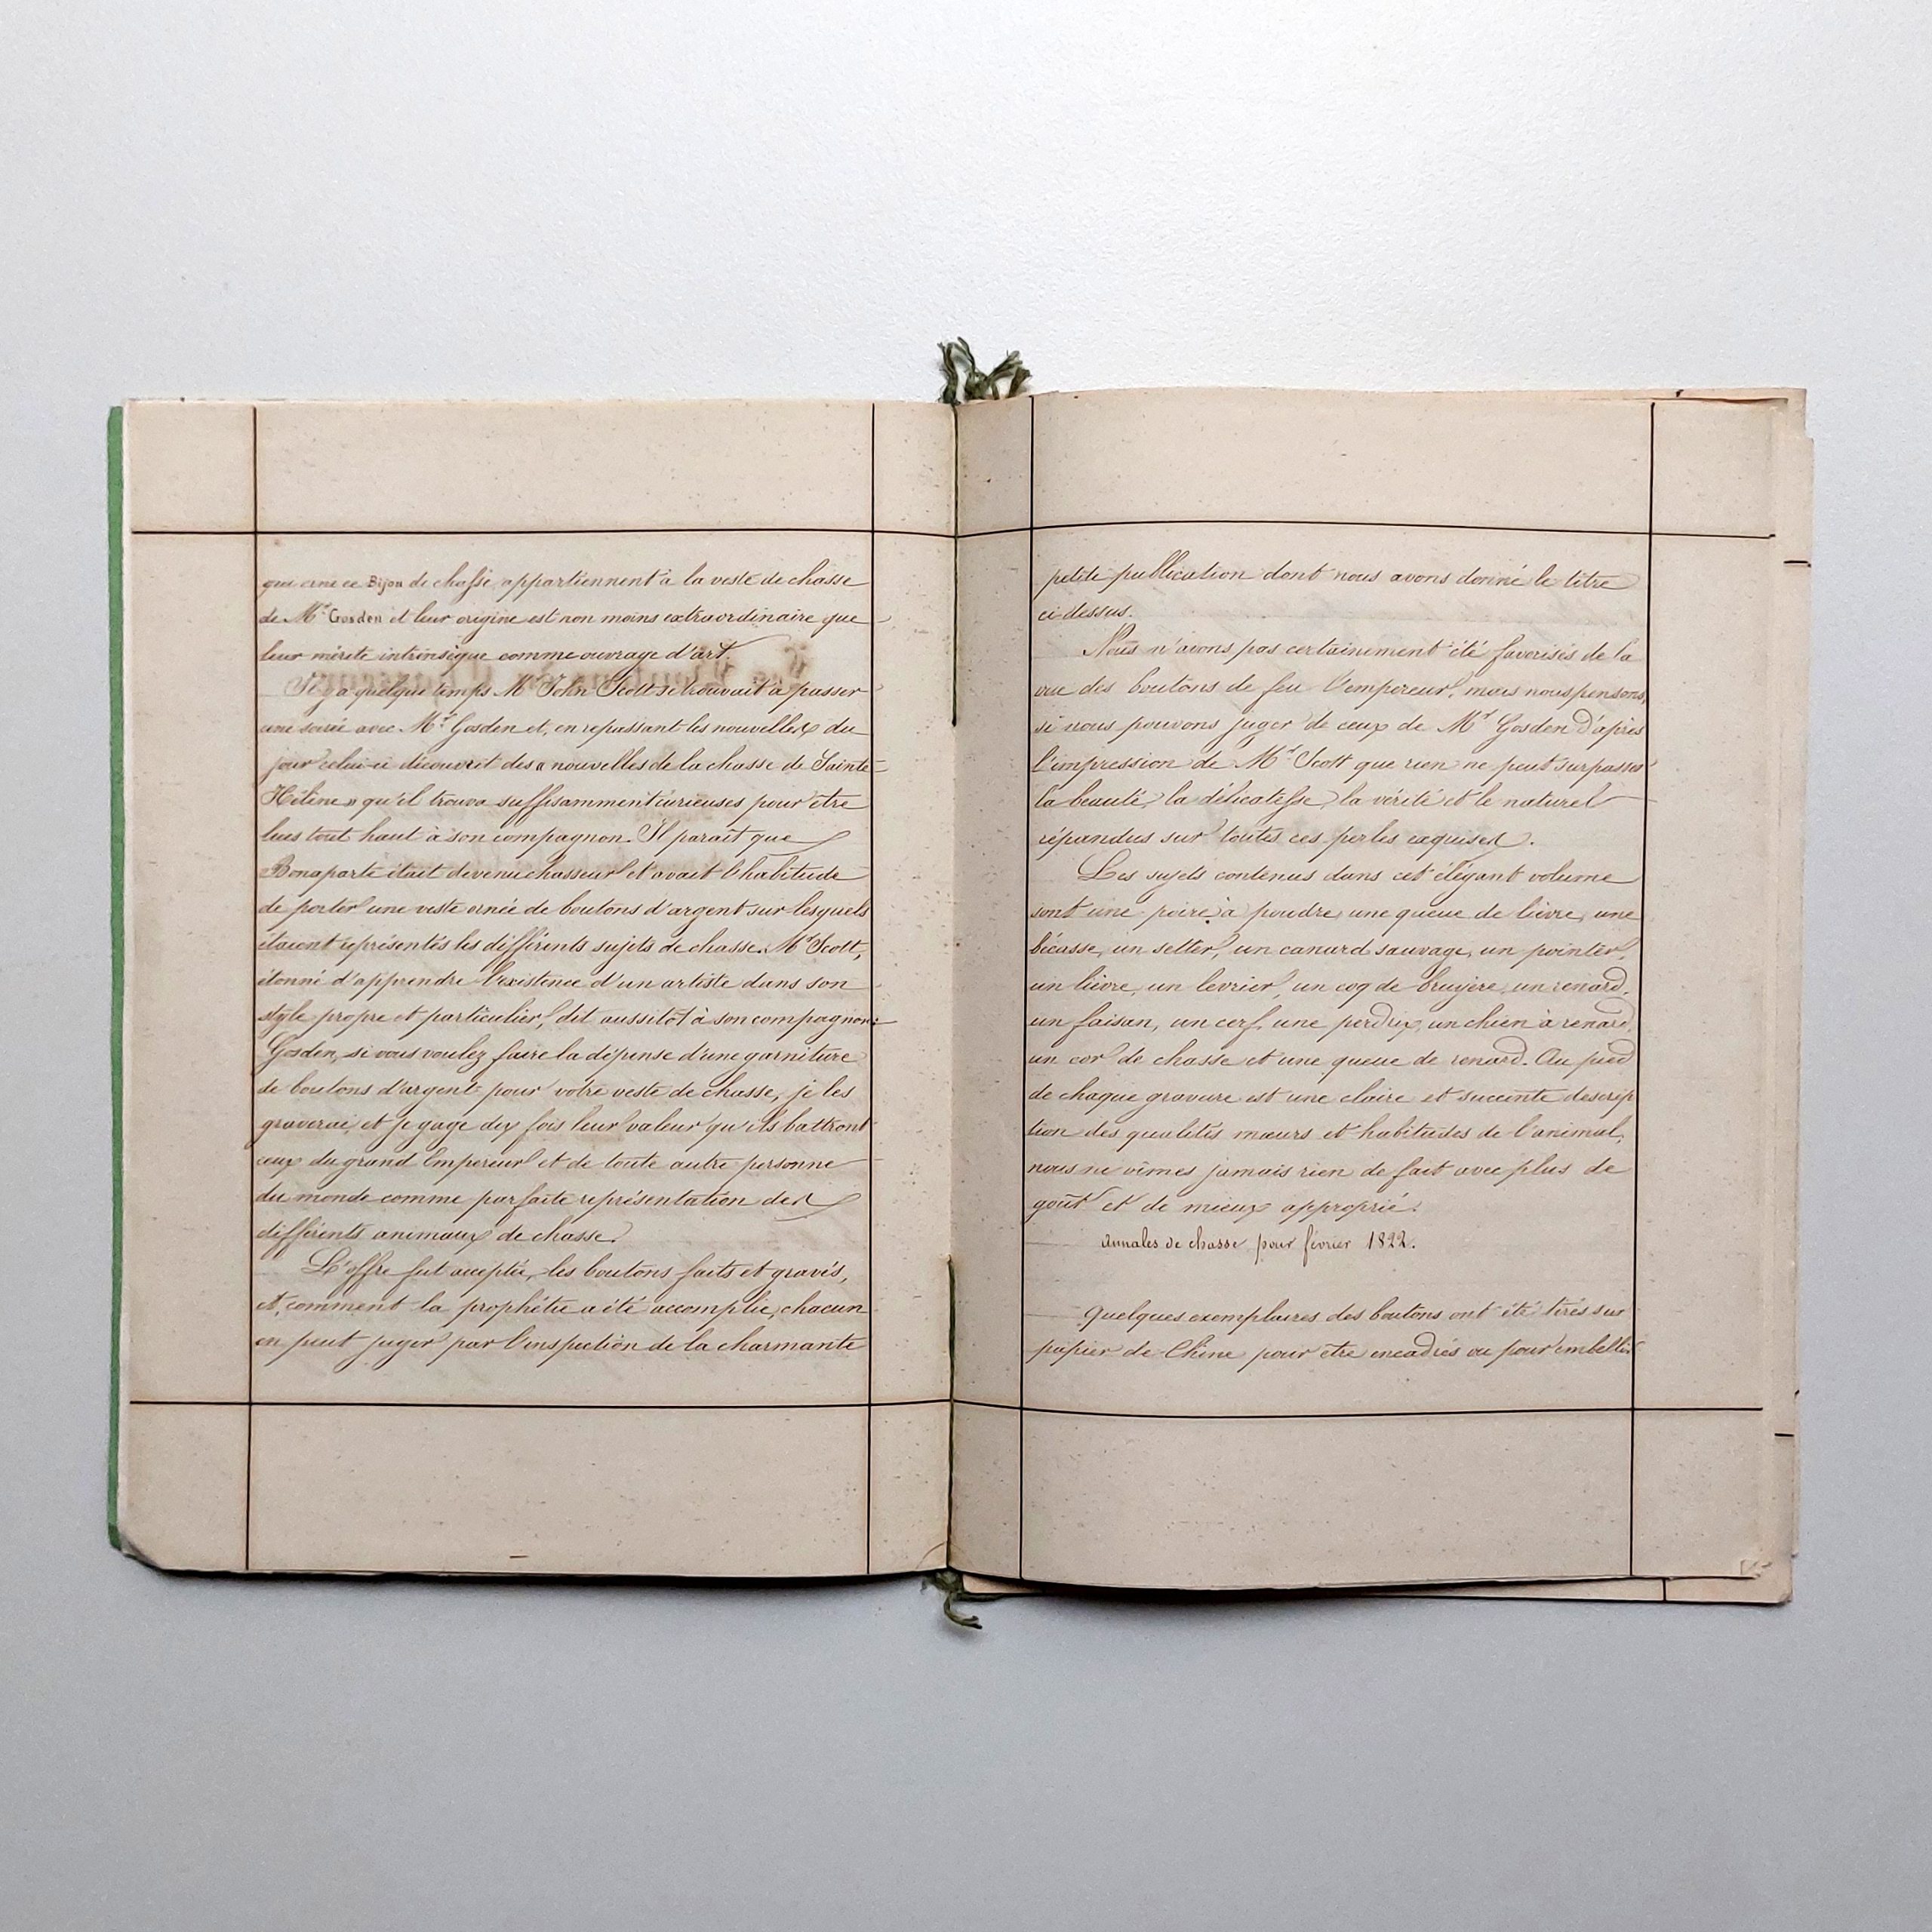 qui orne ce Bijou de chasse, appartiennent à la veste de chasse
de Mr. Gosden et leur origine est non moins extraordinaire que
leur mérite intrinsèque comme ouvrage d'art.
Il y a quelque temps Mr John Scott se trouvait à passer
une soirée avec Mr. Gosden et, en repassant les nouvelles du
jour celui-ci découvrit des « nouvelles de la chasse de Sainte-
Hélène » qu'il trouva suffisamment curieuses pour être
lues tout haut à son compagnon. Il parait que
Bonaparte était devenu chasseur et avait l'habitude
de porter une veste ornée de boutons d'argent sur lesquels
étaient représentés les différents sujets de chasse. Mr Scott,
étonné d'apprendre l'existence d'un artiste dans son
style propre et particulier, dit aussitôt à son compagnon:
Gosden, si vous voulez faire la dépense d'une garniture
de boutons d'argent pour votre veste de chasse, je les
graverai, et je gage dix fois leur valeur qu'ils battront
ceux du grand Empereur et de toute autre personne
du monde comme parfaite représentation des
différents animaux de chasse.
L'offre fut acceptée, les boutons faits et gravés,
et, comment la prophétie a été accomplie, chacun
en peut juger par l'inspection de la charmante
petite publication dont nous avons donné le titre
ci dessus.
Nous n'avons pas certainement été favorisés de la
vue des boutons de feu l'empereur, mais nous pensons,
si nous pouvons juger de ceux de Mr Gosden d'après
l'impression de Mr Scott que rien ne peut surpasser
la beauté, la délicatesse, la vérité et le naturel
répandus sur toutes ces perles exquises.
Les sujets contenus dans cet élégant volume
sont une poire à poudre, une queue de lièvre, une
bécasse, un setter, un canard sauvage, un pointer,
un lièvre, un levrier, un coq de bruyère, un renard,
un faisan, un cerf, une perdrix, un chien à renard,
un cor de chasse et une queue de renard. Au pied
de chaque gravure est une claire et succinte descrip
tion des qualités mœurs et habitudes de l'animal,
nous ne vîmes jamais rien de fait avec plus de
goût et de mieux approprié.
Annales de chasse pour février 1822.
Quelques exemplaires des boutons ont été tirés sur
papier de Chine pour etre encadrés ou pour embellir